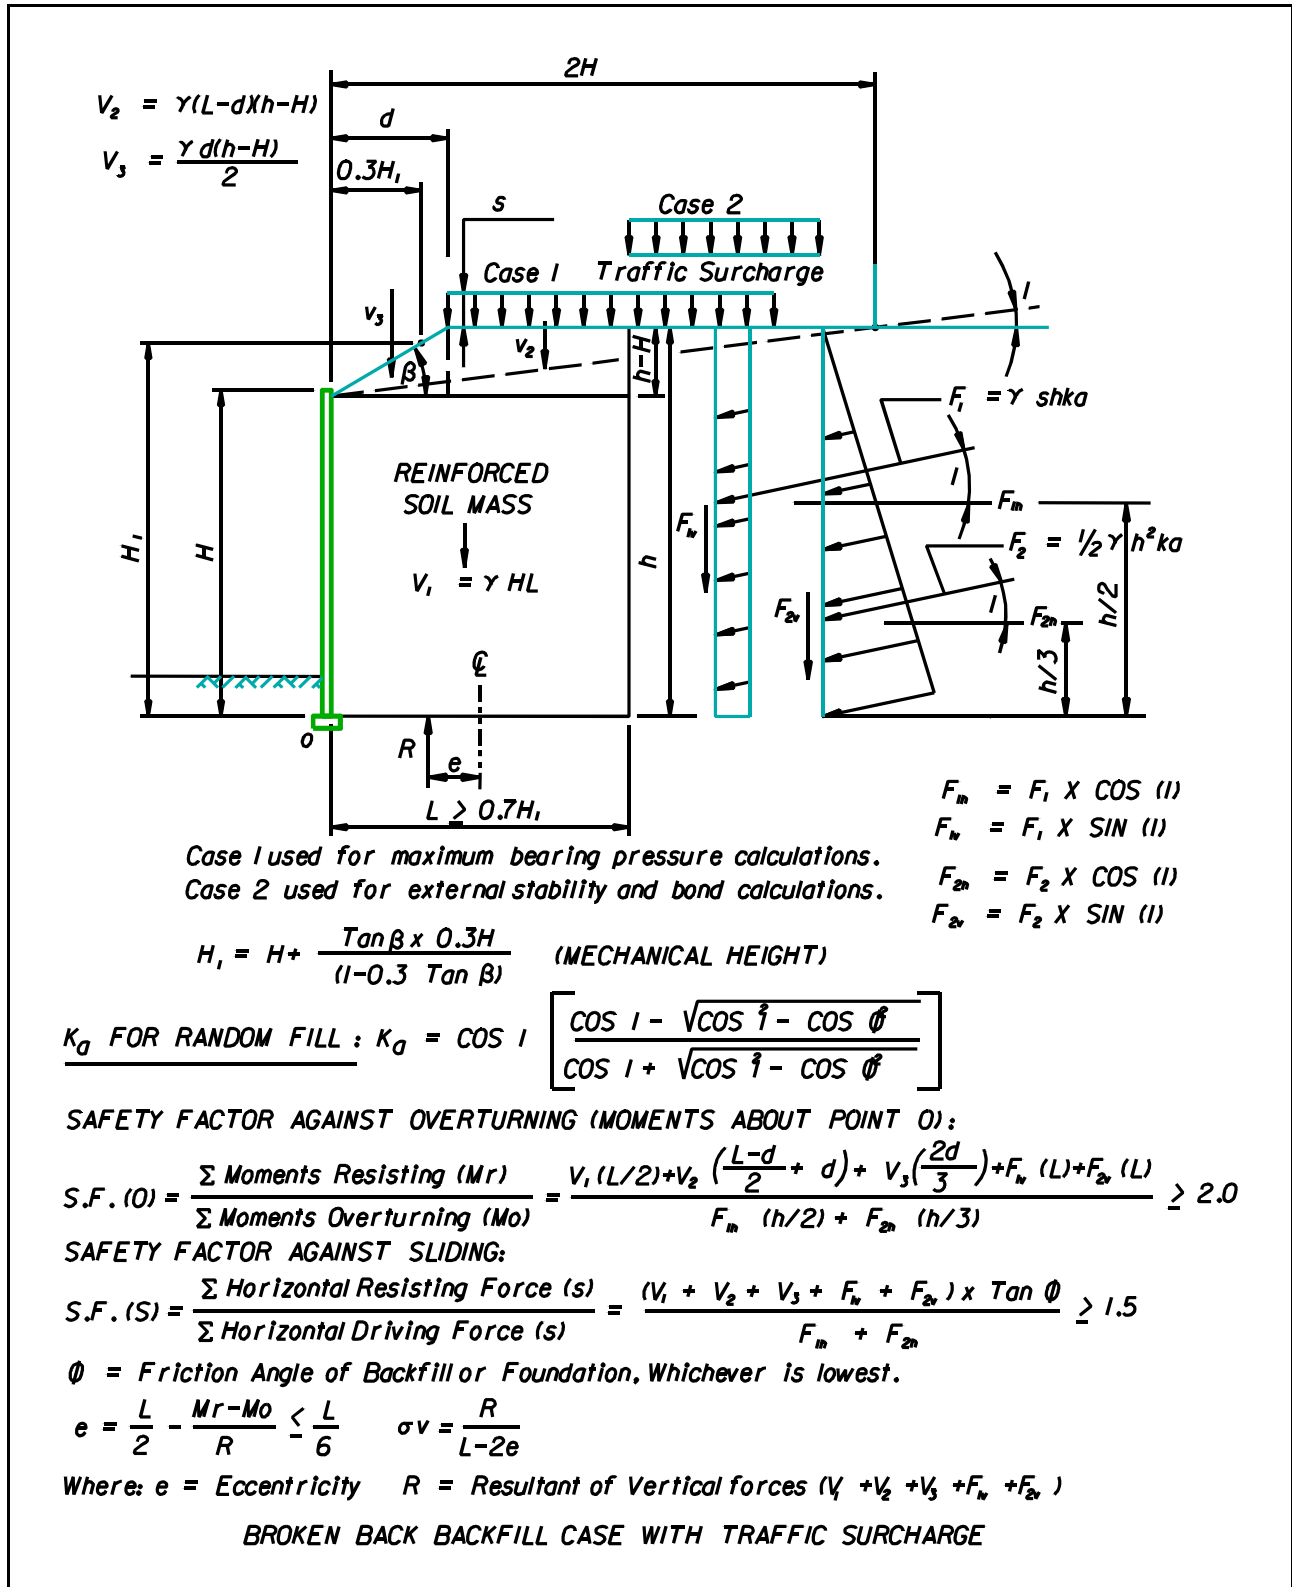 2H
V₂ = γ(L-d)(h-H)
d
V₃ = γ d(h-H) / 2
0.3H₁
s
Case 2
Case 1 Traffic Surcharge
I
V₃
V₂
h-H
β
F₁ = γ shka
REINFORCED
SOIL MASS
I
F₁ₕ
F₁ᵥ
F₂ = ½ γ h²ka
H₁
H
h
V₁ = γ HL
I
h/2
F₂ᵥ
F₂ₕ
h/3
℄
O
R
e
L ≥ 0.7H₁
F₁ₕ = F₁ X COS (I)
F₁ᵥ = F₁ X SIN (I)
F₂ₕ = F₂ X COS (I)
F₂ᵥ = F₂ X SIN (I)
Case 1 used for maximum bearing pressure calculations.
Case 2 used for external stability and bond calculations.
H₁ = H+ Tan β x 0.3H / (1-0.3 Tan β) (MECHANICAL HEIGHT)
Kₐ FOR RANDOM FILL : Kₐ = COS I [ COS I - √COS ²I - COS ²Φ / COS I + √COS ²I - COS ²Φ ]
SAFETY FACTOR AGAINST OVERTURNING (MOMENTS ABOUT POINT O):
S.F.(O) = Σ Moments Resisting (Mr) / Σ Moments Overturning (Mo) = V₁(L/2)+V₂ (L-d / 2 + d) + V₃(2d / 3)+F₁ᵥ (L)+F₂ᵥ (L) / F₁ₕ (h/2) + F₂ₕ (h/3) ≥ 2.0
SAFETY FACTOR AGAINST SLIDING:
S.F.(S) = Σ Horizontal Resisting Force (s) / Σ Horizontal Driving Force (s) = (V₁ + V₂ + V₃ + F₁ᵥ + F₂ᵥ) x Tan Φ / F₁ₕ + F₂ₕ ≥ 1.5
Φ = Friction Angle of Backfill or Foundation, Whichever is lowest.
e = L / 2 - Mr-Mo / R ≤ L / 6 σv = R / L-2e
Where: e = Eccentricity R = Resultant of Vertical forces (V₁ +V₂ +V₃ +F₁ᵥ +F₂ᵥ)
BROKEN BACK BACKFILL CASE WITH TRAFFIC SURCHARGE